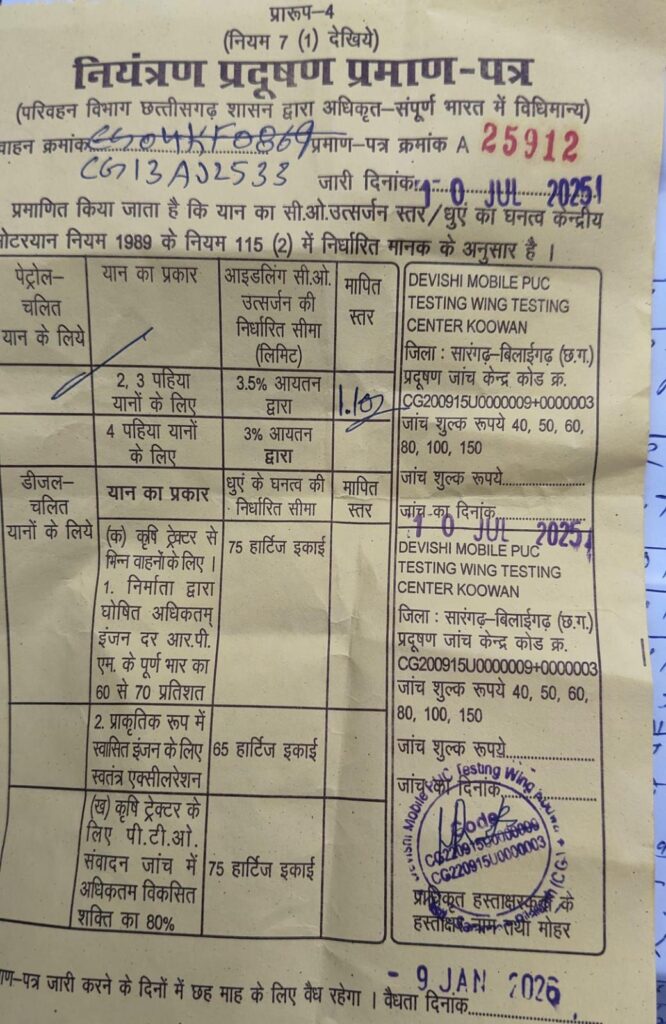 प्रारूप–4
(नियम 7 (1) देखिये)
नियंत्रण प्रदूषण प्रमाण-पत्र
(परिवहन विभाग छत्तीसगढ़ शासन द्वारा अधिकृत–संपूर्ण भारत में विधिमान्य)
वाहन क्रमांक CG04KF0869 प्रमाण–पत्र क्रमांक A 25912
CG13AJ2533 जारी दिनांक: 10 JUL 2025
प्रमाणित किया जाता है कि यान का सी.ओ.उत्सर्जन स्तर/धुएं का घनत्व केन्द्रीय
मोटरयान नियम 1989 के नियम 115 (2) में निर्धारित मानक के अनुसार है ।
पेट्रोल–
चलित
यान के लिये
यान का प्रकार
आइडलिंग सी.ओ.
उत्सर्जन की
निर्धारित सीमा
(लिमिट)
मापित
स्तर
2, 3 पहिया
यानों के लिए
3.5% आयतन
द्वारा
4 पहिया यानों
के लिए
3% आयतन
द्वारा
डीजल–
चलित
यानों के लिये
यान का प्रकार
धुएं के घनत्व की
निर्धारित सीमा
मापित
स्तर
(क) कृषि ट्रेक्टर से
भिन्न वाहनों के लिए ।
1. निर्माता द्वारा
घोषित अधिकतम्
इंजन दर आर.पी.
एम. के पूर्ण भार का
60 से 70 प्रतिशत
75 हार्टिज इकाई
2. प्राकृतिक रूप में
स्वासित इंजन के लिए
स्वतंत्र एक्सीलरेशन
65 हार्टिज इकाई
(ख) कृषि ट्रेक्टर के
लिए पी.टी.ओ.
संवादन जांच में
अधिकतम विकसित
शक्ति का 80%
75 हार्टिज इकाई
DEVISHI MOBILE PUC
TESTING WING TESTING
CENTER KOOWAN
जिला : सारंगढ़–बिलाईगढ़ (छ.ग.)
प्रदूषण जांच केन्द्र कोड क्र.
CG200915U0000009+0000003
जांच शुल्क रूपये 40, 50, 60,
80, 100, 150
जांच शुल्क रूपये
जांच का दिनांक
10 JUL 2025
DEVISHI MOBILE PUC
TESTING WING TESTING
CENTER KOOWAN
जिला : सारंगढ़–बिलाईगढ़ (छ.ग.)
प्रदूषण जांच केन्द्र कोड क्र.
CG200915U0000009+0000003
जांच शुल्क रूपये 40, 50, 60,
80, 100, 150
जांच शुल्क रूपये
जांच का दिनांक
Mobile PUC Testing Wing
Code
CG220915U0000009
CG220915U0000003
प्राधिकृत हस्ताक्षरकर्ता के
हस्ताक्षर नाम तथा मोहर
माण–पत्र जारी करने के दिनों में छह माह के लिए वैध रहेगा । वैधता दिनांक - 9 JAN 2026